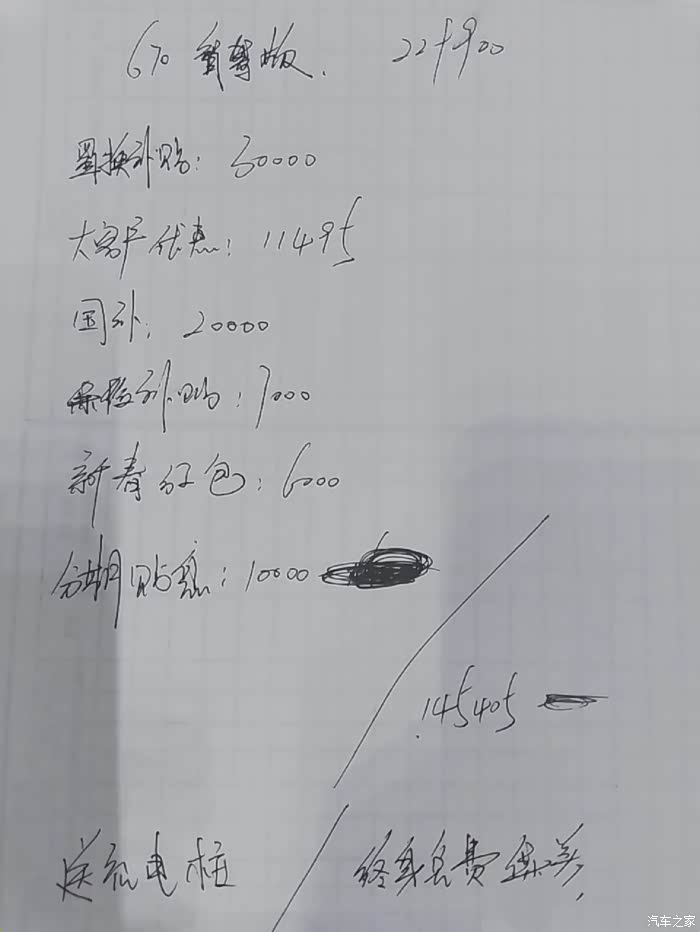 670 版. 229900
置换补贴: 30000
大客户优惠: 11495
国补: 20000
补贴: 7000
新春红包: 6000
分期贴息: 10000
145405
送充电桩 / 终身免费
汽车之家